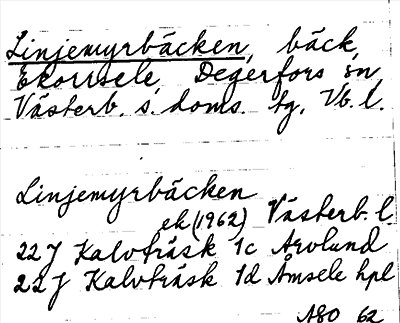 Linjemyrbäcken, bäck,
Ekorrsele, Degerfors sn,
Västerb. s. doms. tg, Vb. l.
Linjemyrbäcken
ek (1962) Västerb. l.
22 J Kalvträsk 1c Arvlund
22 J Kalvträsk 1d Åmsele hpl
ASO 62